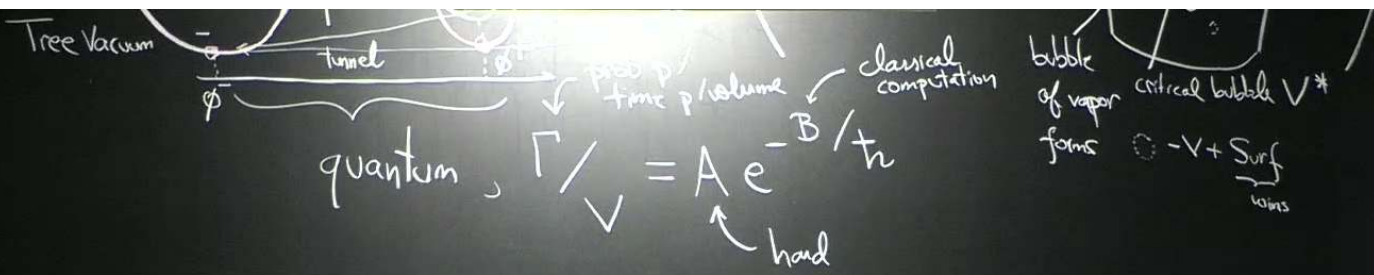 Tree Vacuum
tunnel
ϕ⁻
ϕ⁺
prob p/
time p/volume
classical
computation
quantum, Γ/V = A e^{-B/ħ}
hard
bubble
of vapor
forms
critical bubble V*
-V + Surf
wins